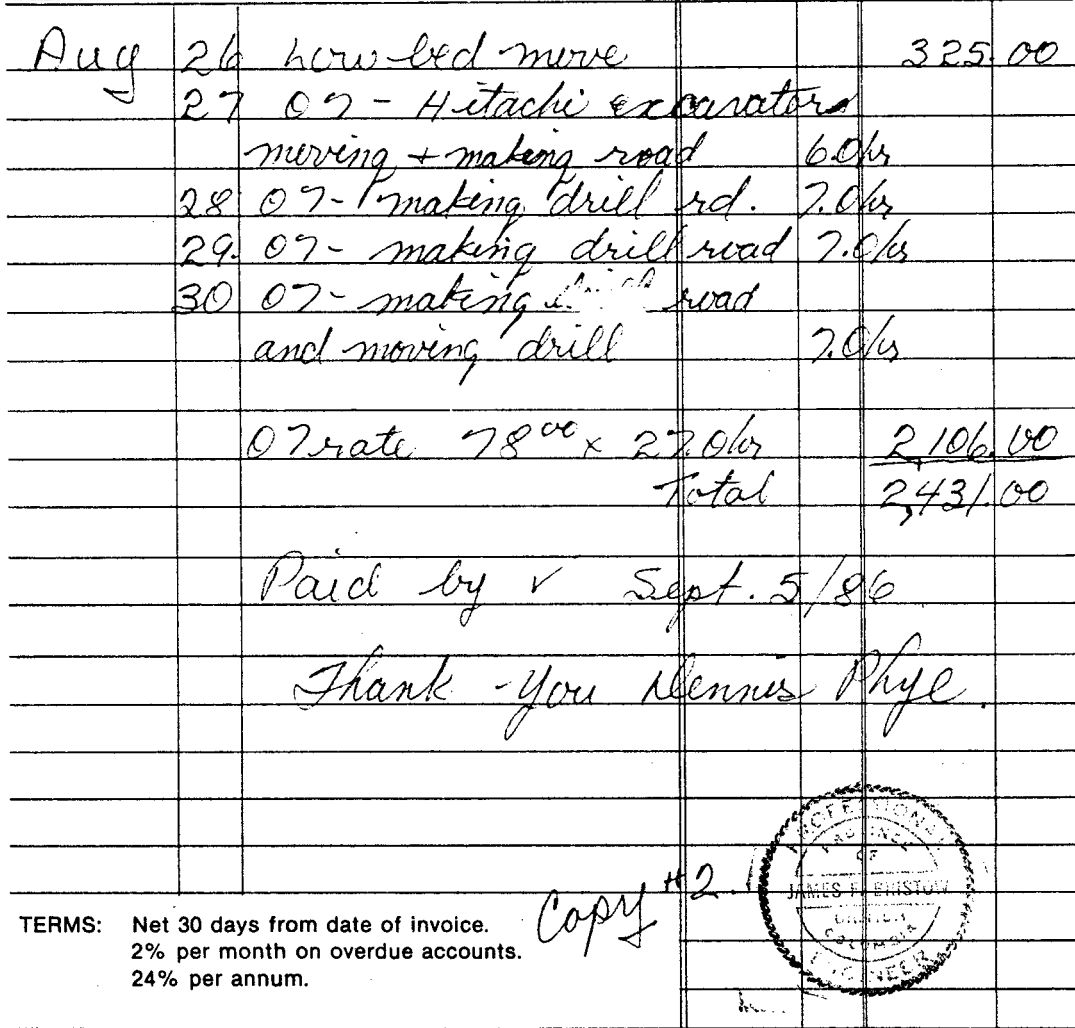 Aug 26 Low-bed move 325.00
27 07 - Hitachi excavator
moving + making road 6.0hr
28 07 - making drill rd. 7.0hr
29. 07 - making drill road 7.0hrs
30 07 - making drill road
and moving drill 7.0hrs
07 rate 78 00 x 27.0hr 2,106.00
Total 2,431.00
Paid by ✓ Sept. 5/86
Thank-You Dennis Phye.
Copy #2.
PROFESSIONAL
PROVINCE
OF
JAMES R. BRISTOW
BRITISH
COLUMBIA
ENGINEER
TERMS: Net 30 days from date of invoice.
2% per month on overdue accounts.
24% per annum.